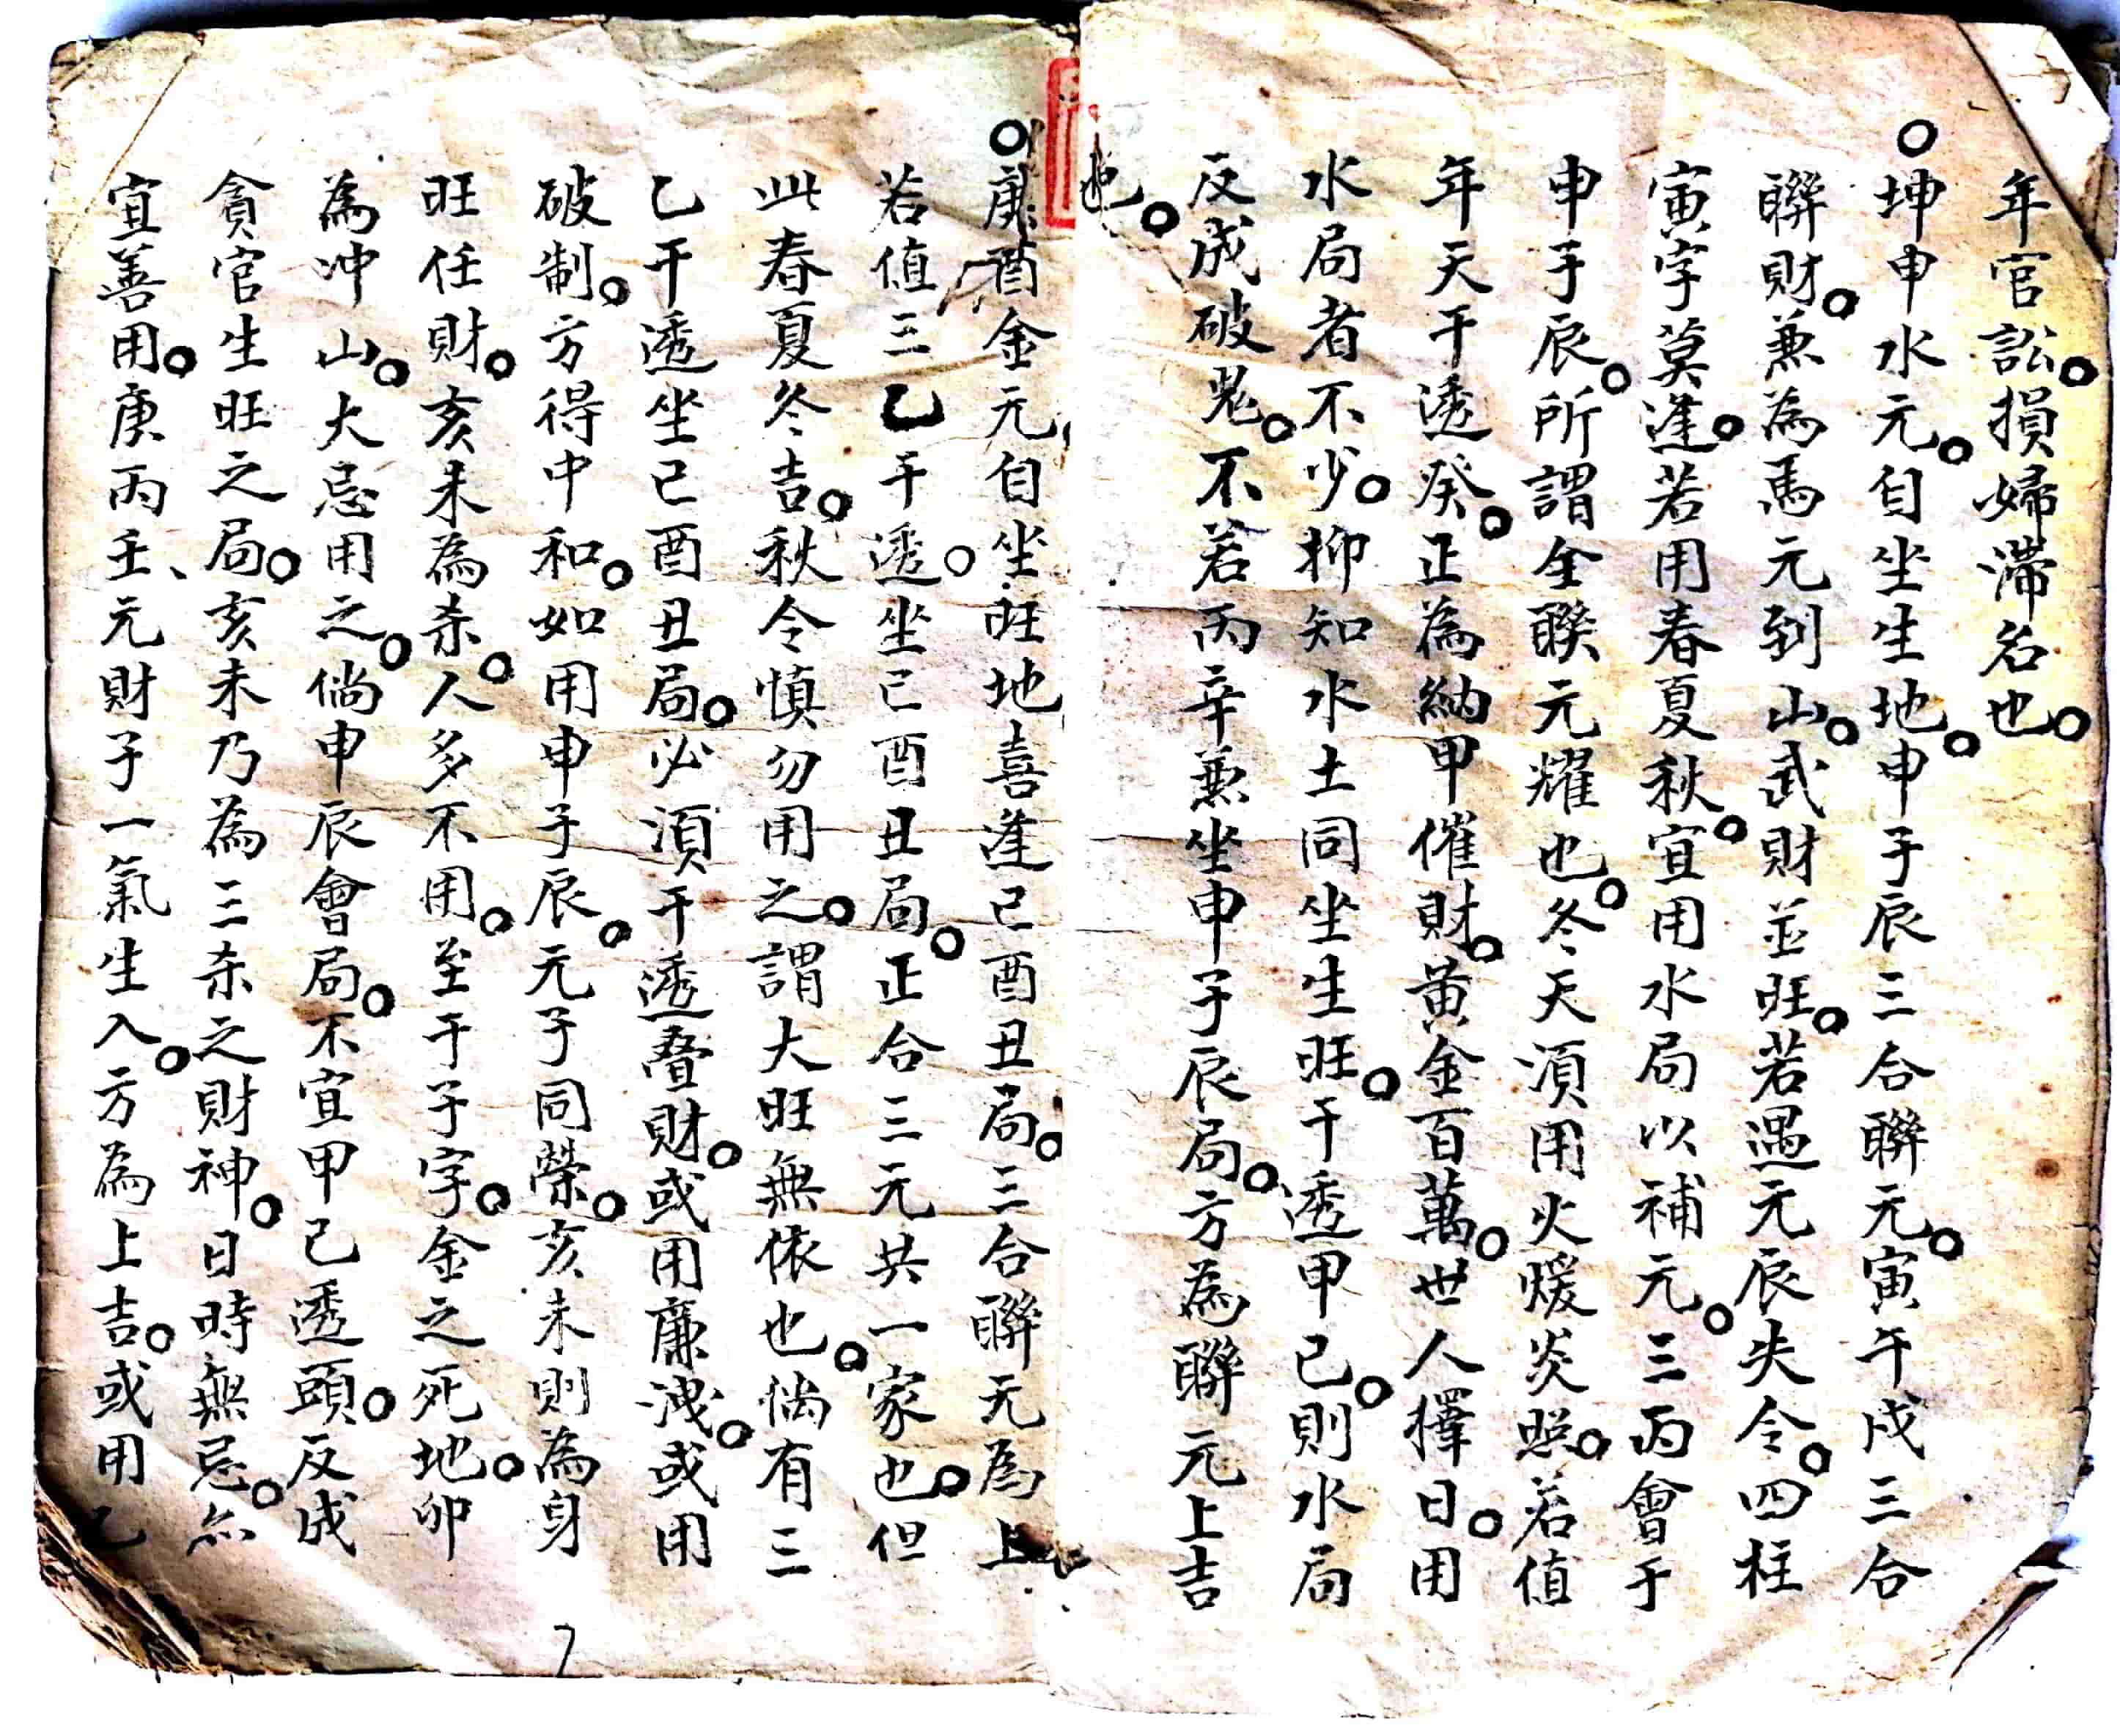 年官訟。損婦滯名也。
○坤申水元。自坐生地。申子辰三合聯元。寅午戌三合
聯財。兼為馬元到山。武財並旺。若遇元辰失令。四柱
寅字莫逢。若用春夏秋。宜用水局以補元。三丙會于
申子辰。所謂全聯元耀也。冬天須用火煖炎照。若值
年天干透癸。正為納甲催財。黃金百萬。世人擇日。用
水局者不少。抑知水土同坐生旺。干透甲己。則水局
反成破鬼。不若丙辛兼坐申子辰局。方為聯元上吉
也。
○庚酉金元自坐旺地喜逢巳酉丑局。三合聯元為上
若值三乙干透。坐巳酉丑局。正合三元共一家也。但
此春夏冬吉。秋令慎勿用之。謂大旺無依也。倘有三
乙干透坐巳酉丑局。必須干透疊財。或用廉洩。或用
破制。方得中和。如用申子辰。元子同榮。亥未則為身
旺任財。亥未為杀。人多不用。至于子字。金之死地。卯
為冲山。大忌用之。倘申辰會局。不宜甲己透頭。反成
貪官生旺之局。亥未乃為三杀之財神。日時無忌。亦
宜善用。庚丙壬、元財子一氣生入。方為上吉。或用乙
7